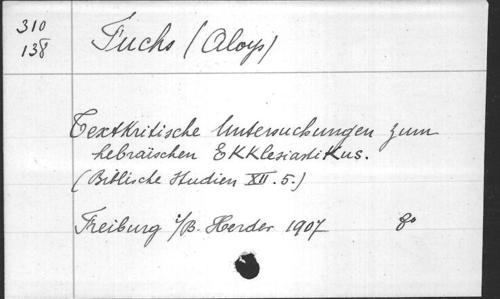 310
138
Fuchs (Aloys)
Textkritische Untersuchungen zum
hebraïschen Ekklesiastikus.
(Biblische Studien XII. 5.)
Freiburg i/B. Herder 1907 8°